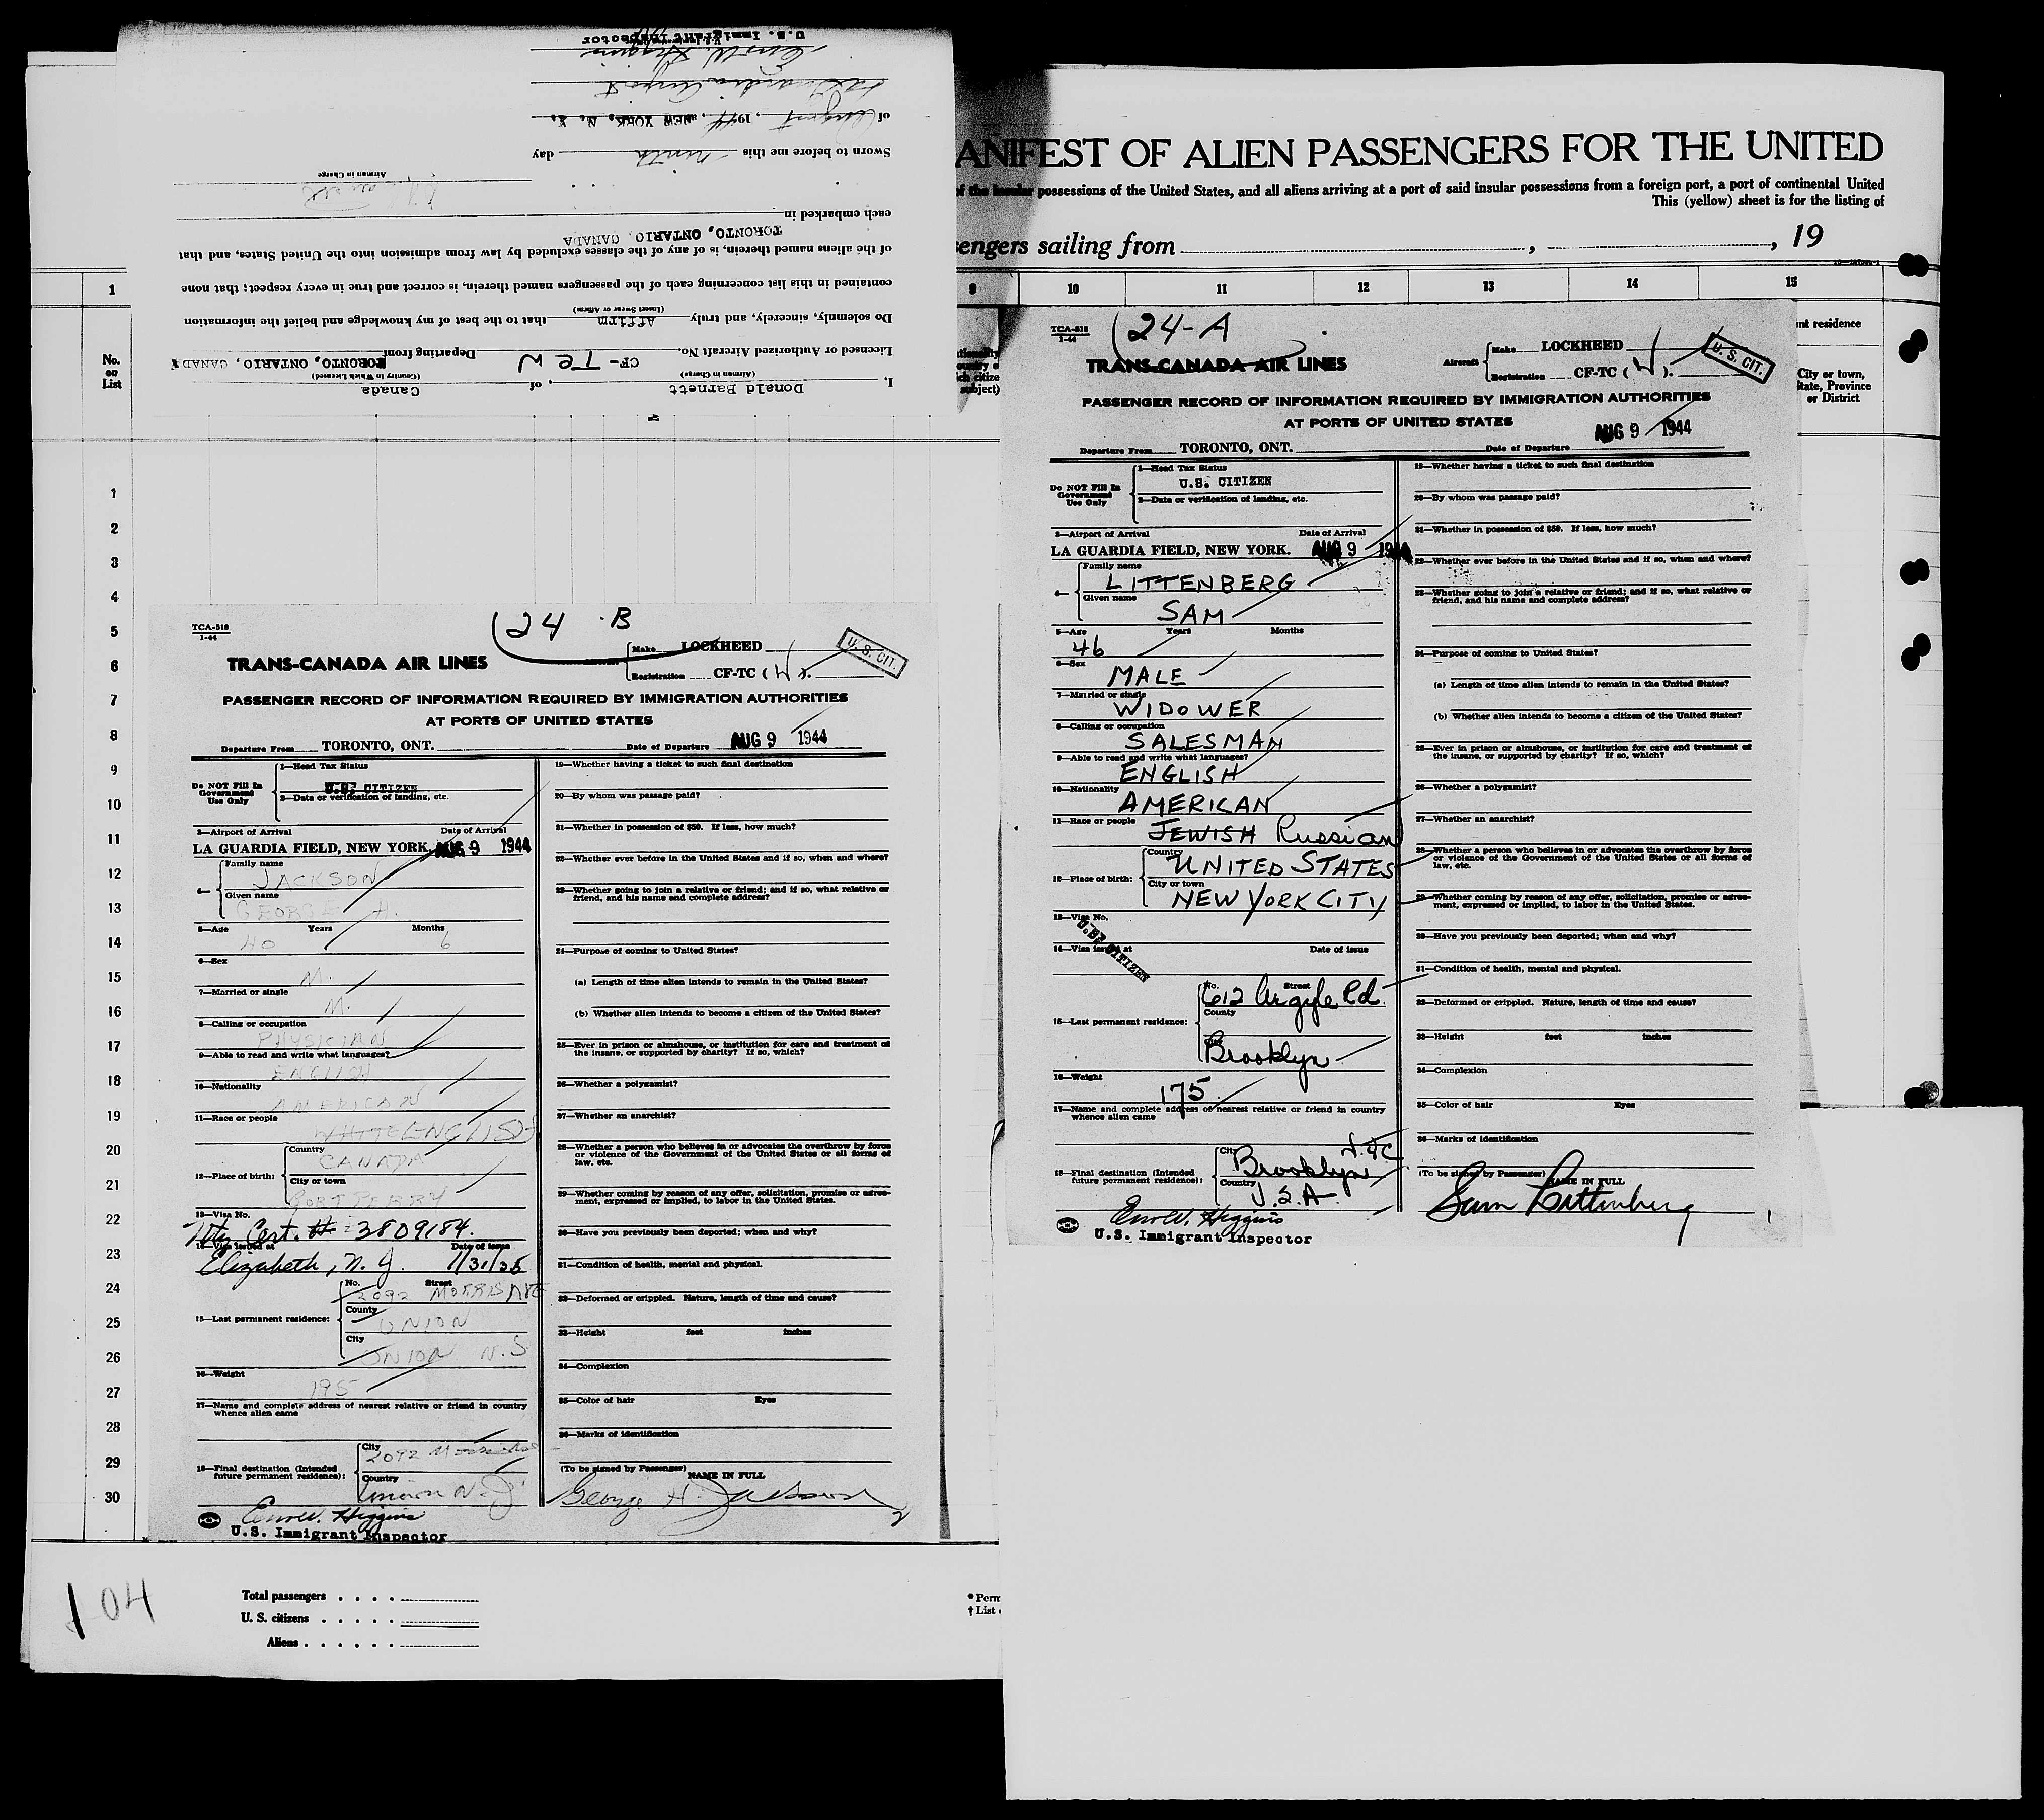 U.S. Immigrant Inspector
La Guardia Airport
of August, 1944, at NEW YORK, N. Y.
Sworn to before me this ninth day
Airman in Charge
each embarked in
TORONTO, ONTARIO, CANADA
of the aliens named therein, is of any of the classes excluded by law from admission into the United States, and that
contained in this list concerning each of the passengers named therein, is correct and true in every respect; that none
(Insert Swear or Affirm)
Do solemnly, sincerely, and truly Affirm that to the best of my knowledge and belief the information
Licensed or Authorized Aircraft No. CF-TCW Departing from TORONTO, ONTARIO, CANADA
(Airman in Charge) (Country in Which Licensed)
I, Donald Barnett, of Canada
ANIFEST OF ALIEN PASSENGERS FOR THE UNITED
of the insular possessions of the United States, and all aliens arriving at a port of said insular possessions from a foreign port, a port of continental United
This (yellow) sheet is for the listing of
engers sailing from , , 19
1 9 10 11 12 13 14 15
No.
on
List
nt residence
City or town,
State, Province
or District
1
2
3
4
5
6
7
8
9
10
11
12
13
14
15
16
17
18
19
20
21
22
23
24
25
26
27
28
29
30
TCA-518
1-44
24 B
TRANS-CANADA AIR LINES
Aircraft Make LOCKHEED
Registration CF-TC (W).
U. S. CIT.
PASSENGER RECORD OF INFORMATION REQUIRED BY IMMIGRATION AUTHORITIES
AT PORTS OF UNITED STATES
Departure From TORONTO, ONT. Date of Departure AUG 9 1944
Do NOT Fill In
Government
Use Only
1—Head Tax Status
U.S. CITIZEN
2—Data or verification of landing, etc.
3—Airport of Arrival Date of Arrival
LA GUARDIA FIELD, NEW YORK. AUG 9 1944
4—
Family name
JACKSON
Given name
GEORGE H.
5—Age Years Months
40 6
6—Sex
M.
7—Married or single
M.
8—Calling or occupation
PHYSICIAN
9—Able to read and write what languages?
ENGLISH
10—Nationality
AMERICAN
11—Race or people
WHITE ENGLISH
12—Place of birth:
Country
CANADA
City or town
PORT PERRY
13—Visa No.
Ntz Cert. # 3809184.
14—Visa issued at Date of issue
Elizabeth, N. J. 1/31/35
15—Last permanent residence:
No. Street
2092 MORRIS AVE
County
UNION
City
UNION N.J.
16—Weight
195
17—Name and complete address of nearest relative or friend in country
whence alien came
18—Final destination (Intended
future permanent residence):
City
2092 Morris Ave
Country
Union N.J.
Errol W. Higgins
U.S. Immigrant Inspector
19—Whether having a ticket to such final destination
20—By whom was passage paid?
21—Whether in possession of $50. If less, how much?
22—Whether ever before in the United States and if so, when and where?
23—Whether going to join a relative or friend; and if so, what relative or
friend, and his name and complete address?
24—Purpose of coming to United States?
(a) Length of time alien intends to remain in the United States?
(b) Whether alien intends to become a citizen of the United States?
25—Ever in prison or almshouse, or institution for care and treatment of
the insane, or supported by charity? If so, which?
26—Whether a polygamist?
27—Whether an anarchist?
28—Whether a person who believes in or advocates the overthrow by force
or violence of the Government of the United States or all forms of
law, etc.
29—Whether coming by reason of any offer, solicitation, promise or agree-
ment, expressed or implied, to labor in the United States.
30—Have you previously been deported; when and why?
31—Condition of health, mental and physical.
32—Deformed or crippled. Nature, length of time and cause?
33—Height feet inches
34—Complexion
35—Color of hair Eyes
36—Marks of identification
(To be signed by Passenger)
NAME IN FULL
George H. Jackson
2
TCA-518
1-44
24-A
TRANS-CANADA AIR LINES
Aircraft Make LOCKHEED
Registration CF-TC (W).
U. S. CIT.
PASSENGER RECORD OF INFORMATION REQUIRED BY IMMIGRATION AUTHORITIES
AT PORTS OF UNITED STATES
Departure From TORONTO, ONT. Date of Departure AUG 9 1944
Do NOT Fill In
Government
Use Only
1—Head Tax Status
U.S. CITIZEN
2—Data or verification of landing, etc.
3—Airport of Arrival Date of Arrival
LA GUARDIA FIELD, NEW YORK. AUG 9 1944
4—
Family name
LITTENBERG
Given name
SAM
5—Age Years Months
46
6—Sex
MALE
7—Married or single
WIDOWER
8—Calling or occupation
SALESMAN
9—Able to read and write what languages?
ENGLISH
10—Nationality
AMERICAN
11—Race or people
JEWISH Russian
12—Place of birth:
Country
UNITED STATES
City or town
NEW YORK CITY
13—Visa No.
U.S. CITIZEN
14—Visa issued at Date of issue
15—Last permanent residence:
No. Street
612 Argyle Rd.
County
City
Brooklyn
16—Weight
175
17—Name and complete address of nearest relative or friend in country
whence alien came
18—Final destination (Intended
future permanent residence):
City
Brooklyn N.Y.C
Country
U.S.A.
Errol W. Higgins
U.S. Immigrant Inspector
19—Whether having a ticket to such final destination
20—By whom was passage paid?
21—Whether in possession of $50. If less, how much?
22—Whether ever before in the United States and if so, when and where?
23—Whether going to join a relative or friend; and if so, what relative or
friend, and his name and complete address?
24—Purpose of coming to United States?
(a) Length of time alien intends to remain in the United States?
(b) Whether alien intends to become a citizen of the United States?
25—Ever in prison or almshouse, or institution for care and treatment of
the insane, or supported by charity? If so, which?
26—Whether a polygamist?
27—Whether an anarchist?
28—Whether a person who believes in or advocates the overthrow by force
or violence of the Government of the United States or all forms of
law, etc.
29—Whether coming by reason of any offer, solicitation, promise or agree-
ment, expressed or implied, to labor in the United States.
30—Have you previously been deported; when and why?
31—Condition of health, mental and physical.
32—Deformed or crippled. Nature, length of time and cause?
33—Height feet inches
34—Complexion
35—Color of hair Eyes
36—Marks of identification
(To be signed by Passenger)
NAME IN FULL
Sam Littenberg
1
104
Total passengers
U. S. citizens
Aliens
* Perm
† List